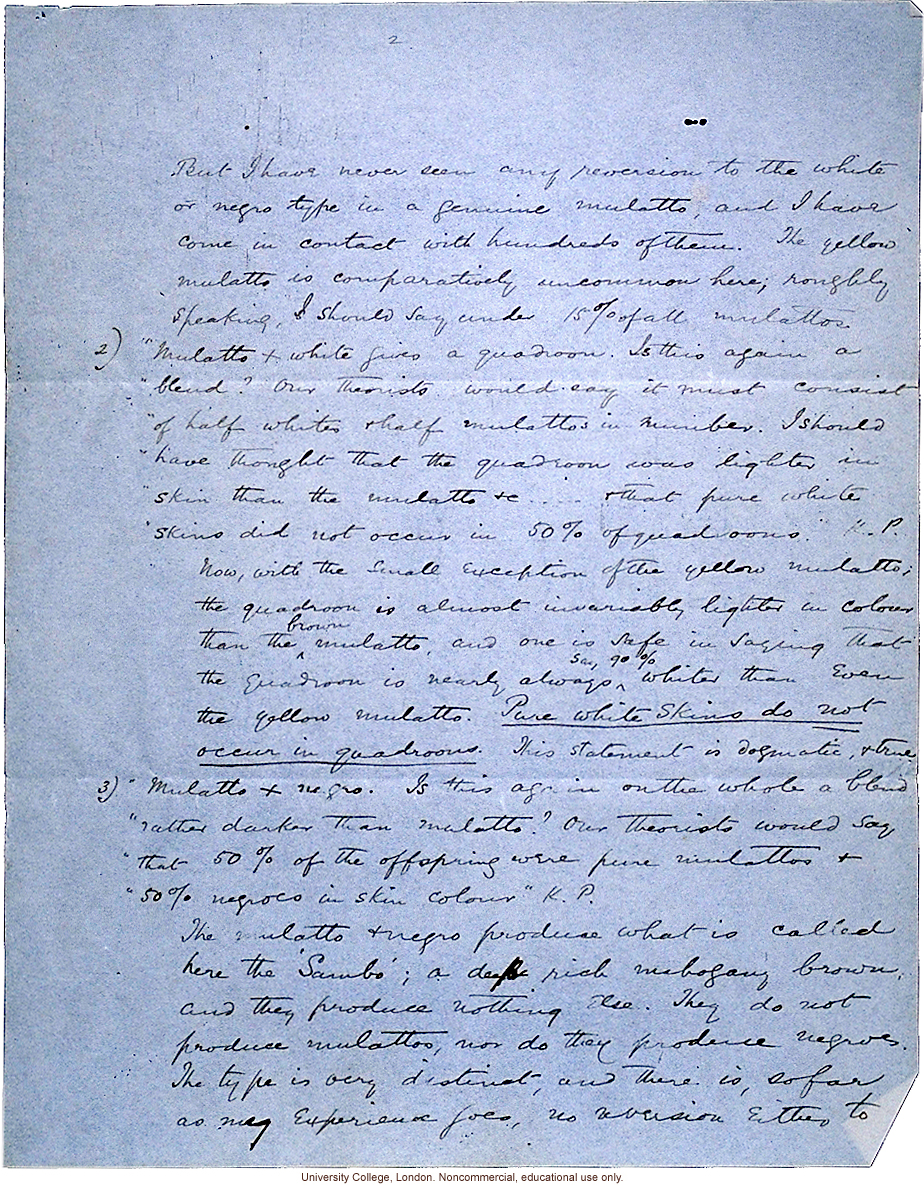 2
But I have never seen any reversion to the white
or negro type in a genuine mulatto, and I have
come in contact with hundreds of them. The yellow
mulatto is comparatively uncommon here; roughly
speaking, I should say under 15% of all mulattos.
2) "Mulatto + white gives a quadroon. Is this again a
"blend? Our theorists would say it must consist
"of half whites & half mulattos in number. I should
"have thought that the quadroon was lighter in
"skin than the mulatto &c ..... & that pure white
"skins did not occur in 50% of quadroons." K.P.
Now, with the small exception of the yellow mulatto;
the quadroon is almost invariably lighter in colour
than the brown mulatto, and one is safe in saying that
the quadroon is nearly always, say 90% whiter than even
the yellow mulatto. Pure white skins do not
occur in quadroons. This statement is dogmatic, & true.
3) "Mulatto + negro. Is this again on the whole a blend
"rather darker than mulatto? Our theorists would say
"that 50% of the offspring were pure mulattos &
"50% negroes in skin colour" K.P.
The mulatto & negro produce what is called
here the 'Sambo'; a deep rich mahogany brown,
and they produce nothing else. They do not
produce mulattos, nor do they produce negroes.
The type is very distinct, and there is, so far
as my experience goes, no reversion either to
University College, London. Noncommercial, educational use only.